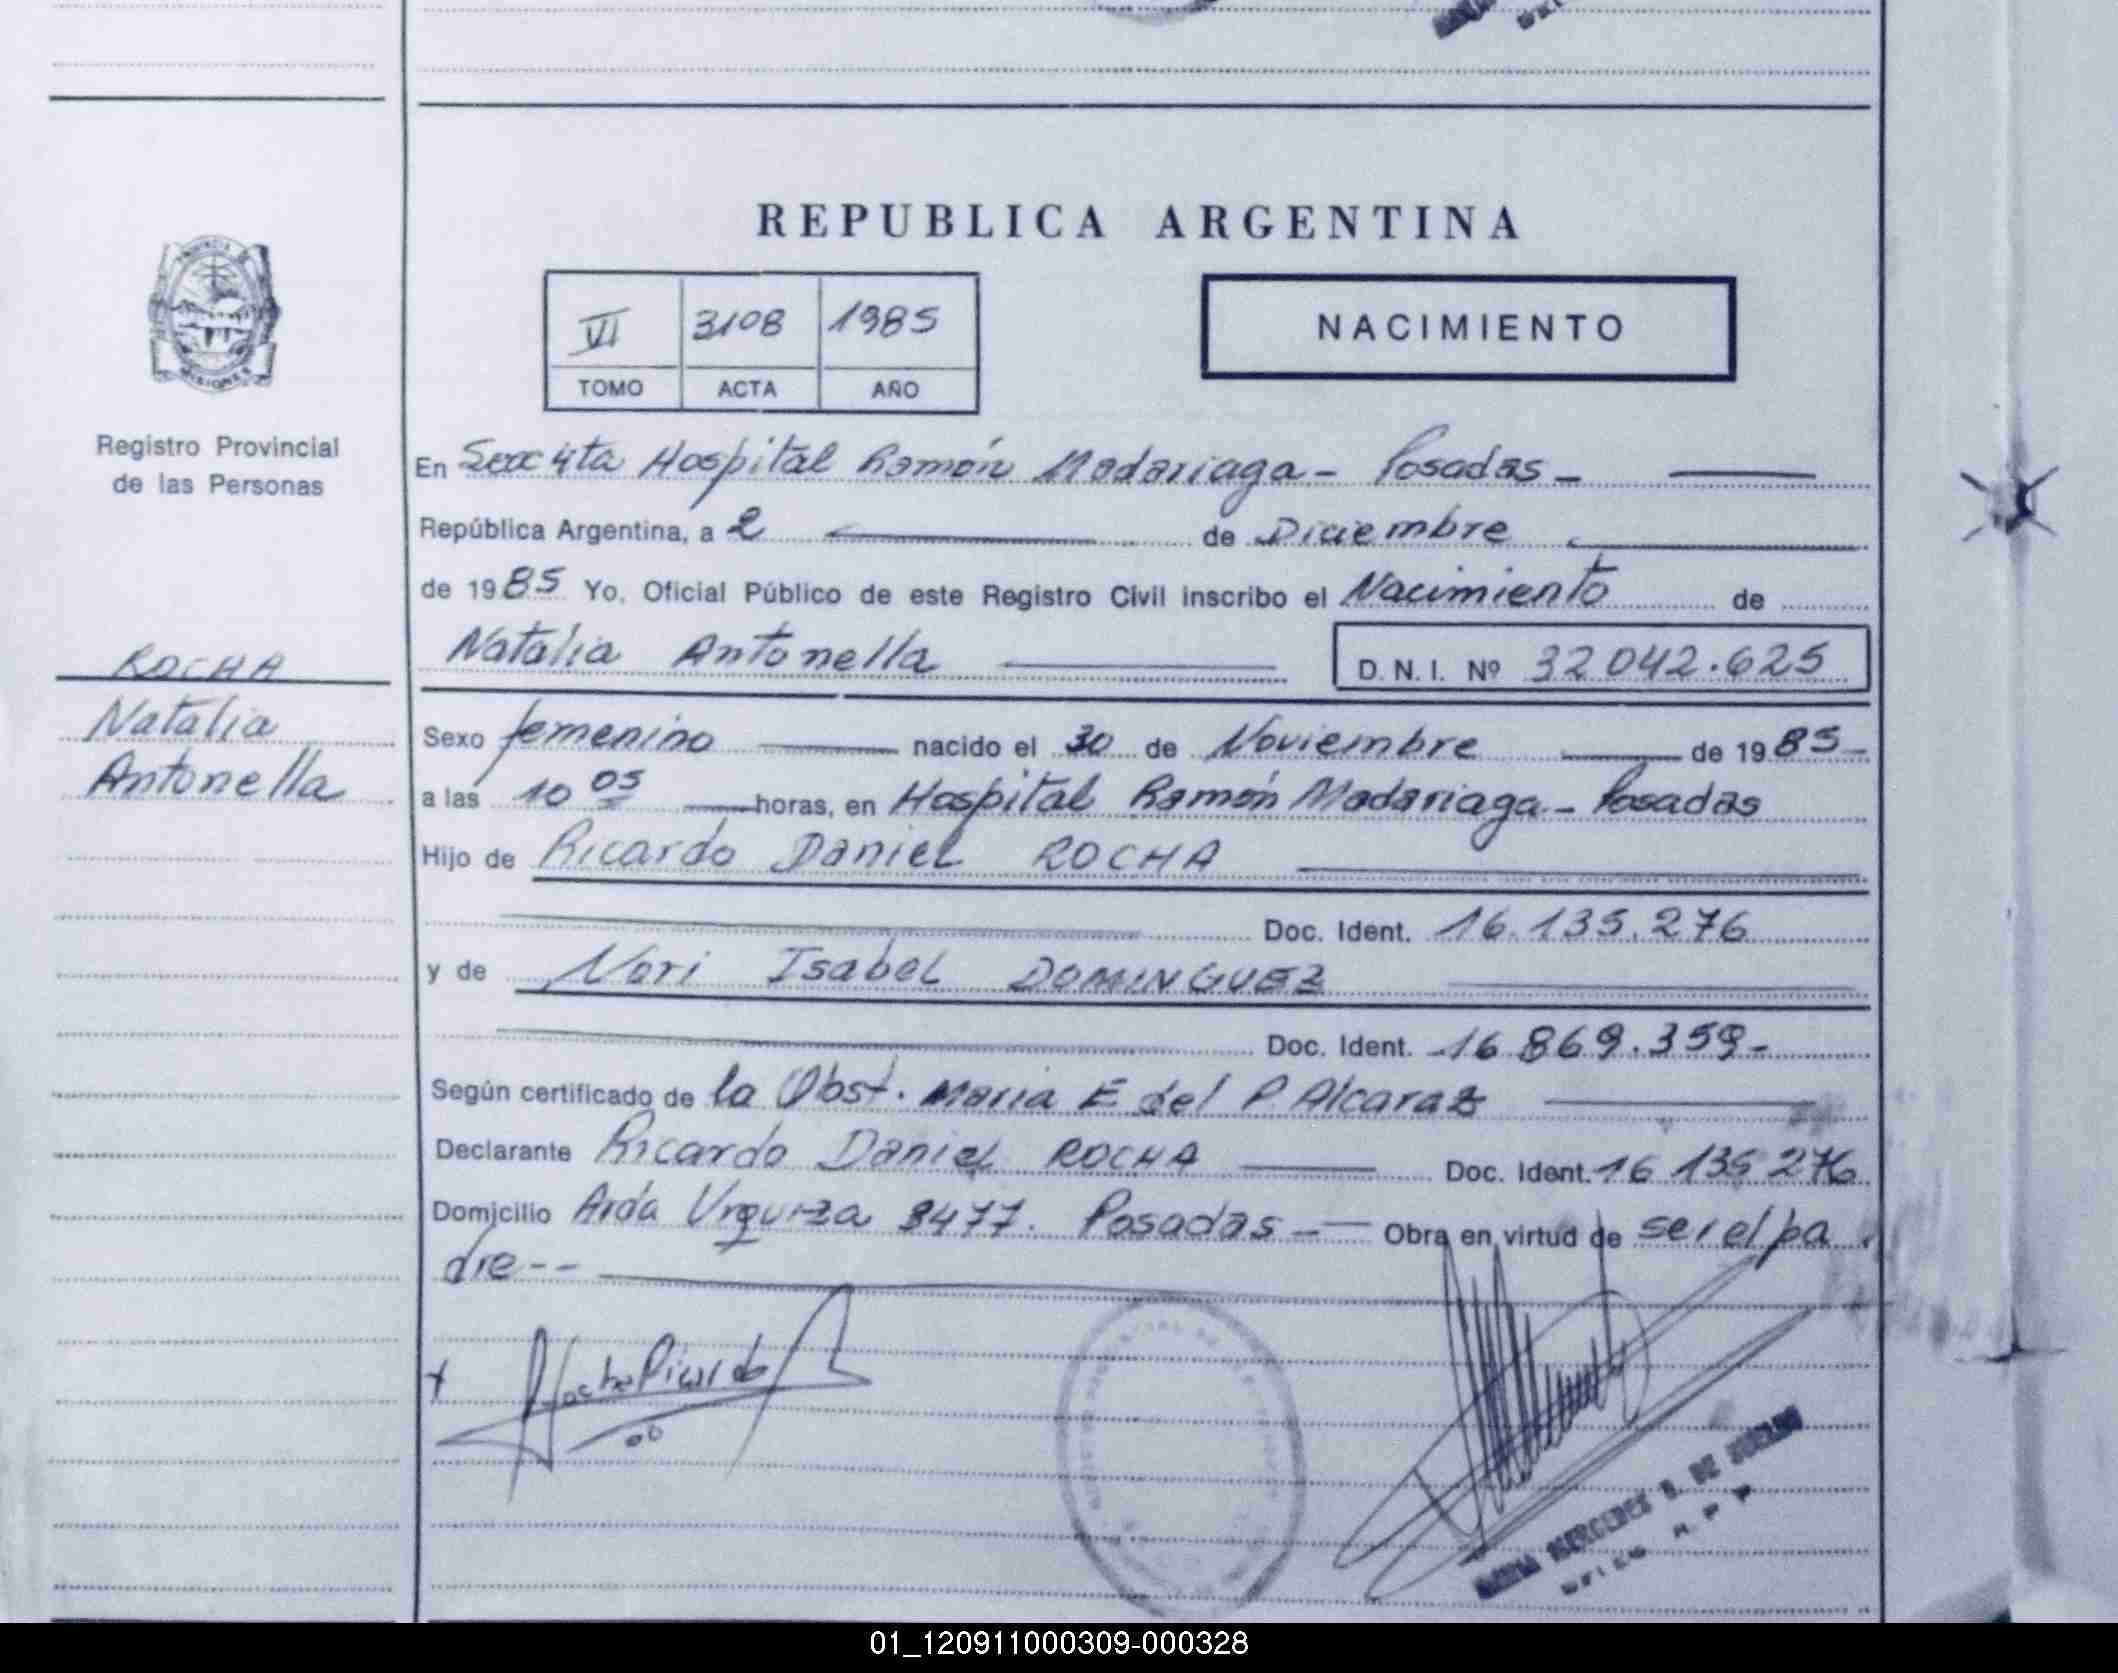 REPUBLICA ARGENTINA
VI 3108 1985
TOMO ACTA AÑO
NACIMIENTO
PROVINCIA DE
MISIONES
Registro Provincial
de las Personas
ROCHA
Natalia
Antonella
En Secc 4ta Hospital Ramón Madariaga - Posadas -
República Argentina, a 2 de Diciembre
de 1985 Yo, Oficial Público de este Registro Civil inscribo el Nacimiento de
Natalia Antonella D.N.I. Nº 32042.625
Sexo femenino nacido el 30 de Noviembre de 1985-
a las 10 05 horas, en Hospital Ramón Madariaga - Posadas
Hijo de Ricardo Daniel ROCHA
Doc. Ident. 16.135.276
y de Nori Isabel DOMINGUEZ
Doc. Ident. 16 869.359-
Según certificado de la Obst. Maria E del P Alcaraz
Declarante Ricardo Daniel ROCHA Doc. Ident. 16 135 276
Domicilio Avda Urquiza 3477. Posadas - Obra en virtud de ser el pa
dre--
Rocha Ricardo
MERCEDES DE
01_120911000309-000328